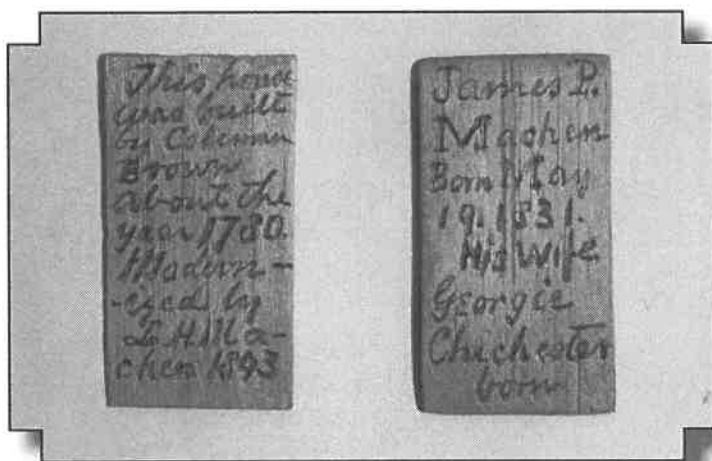 This house
was built
by Coleman
Brown
about the
year 1780.
Modern-
-ized by
Machen 1893
James P.
Machen
Born May
19. 1831.
His Wife
Georgie
Chichester
born